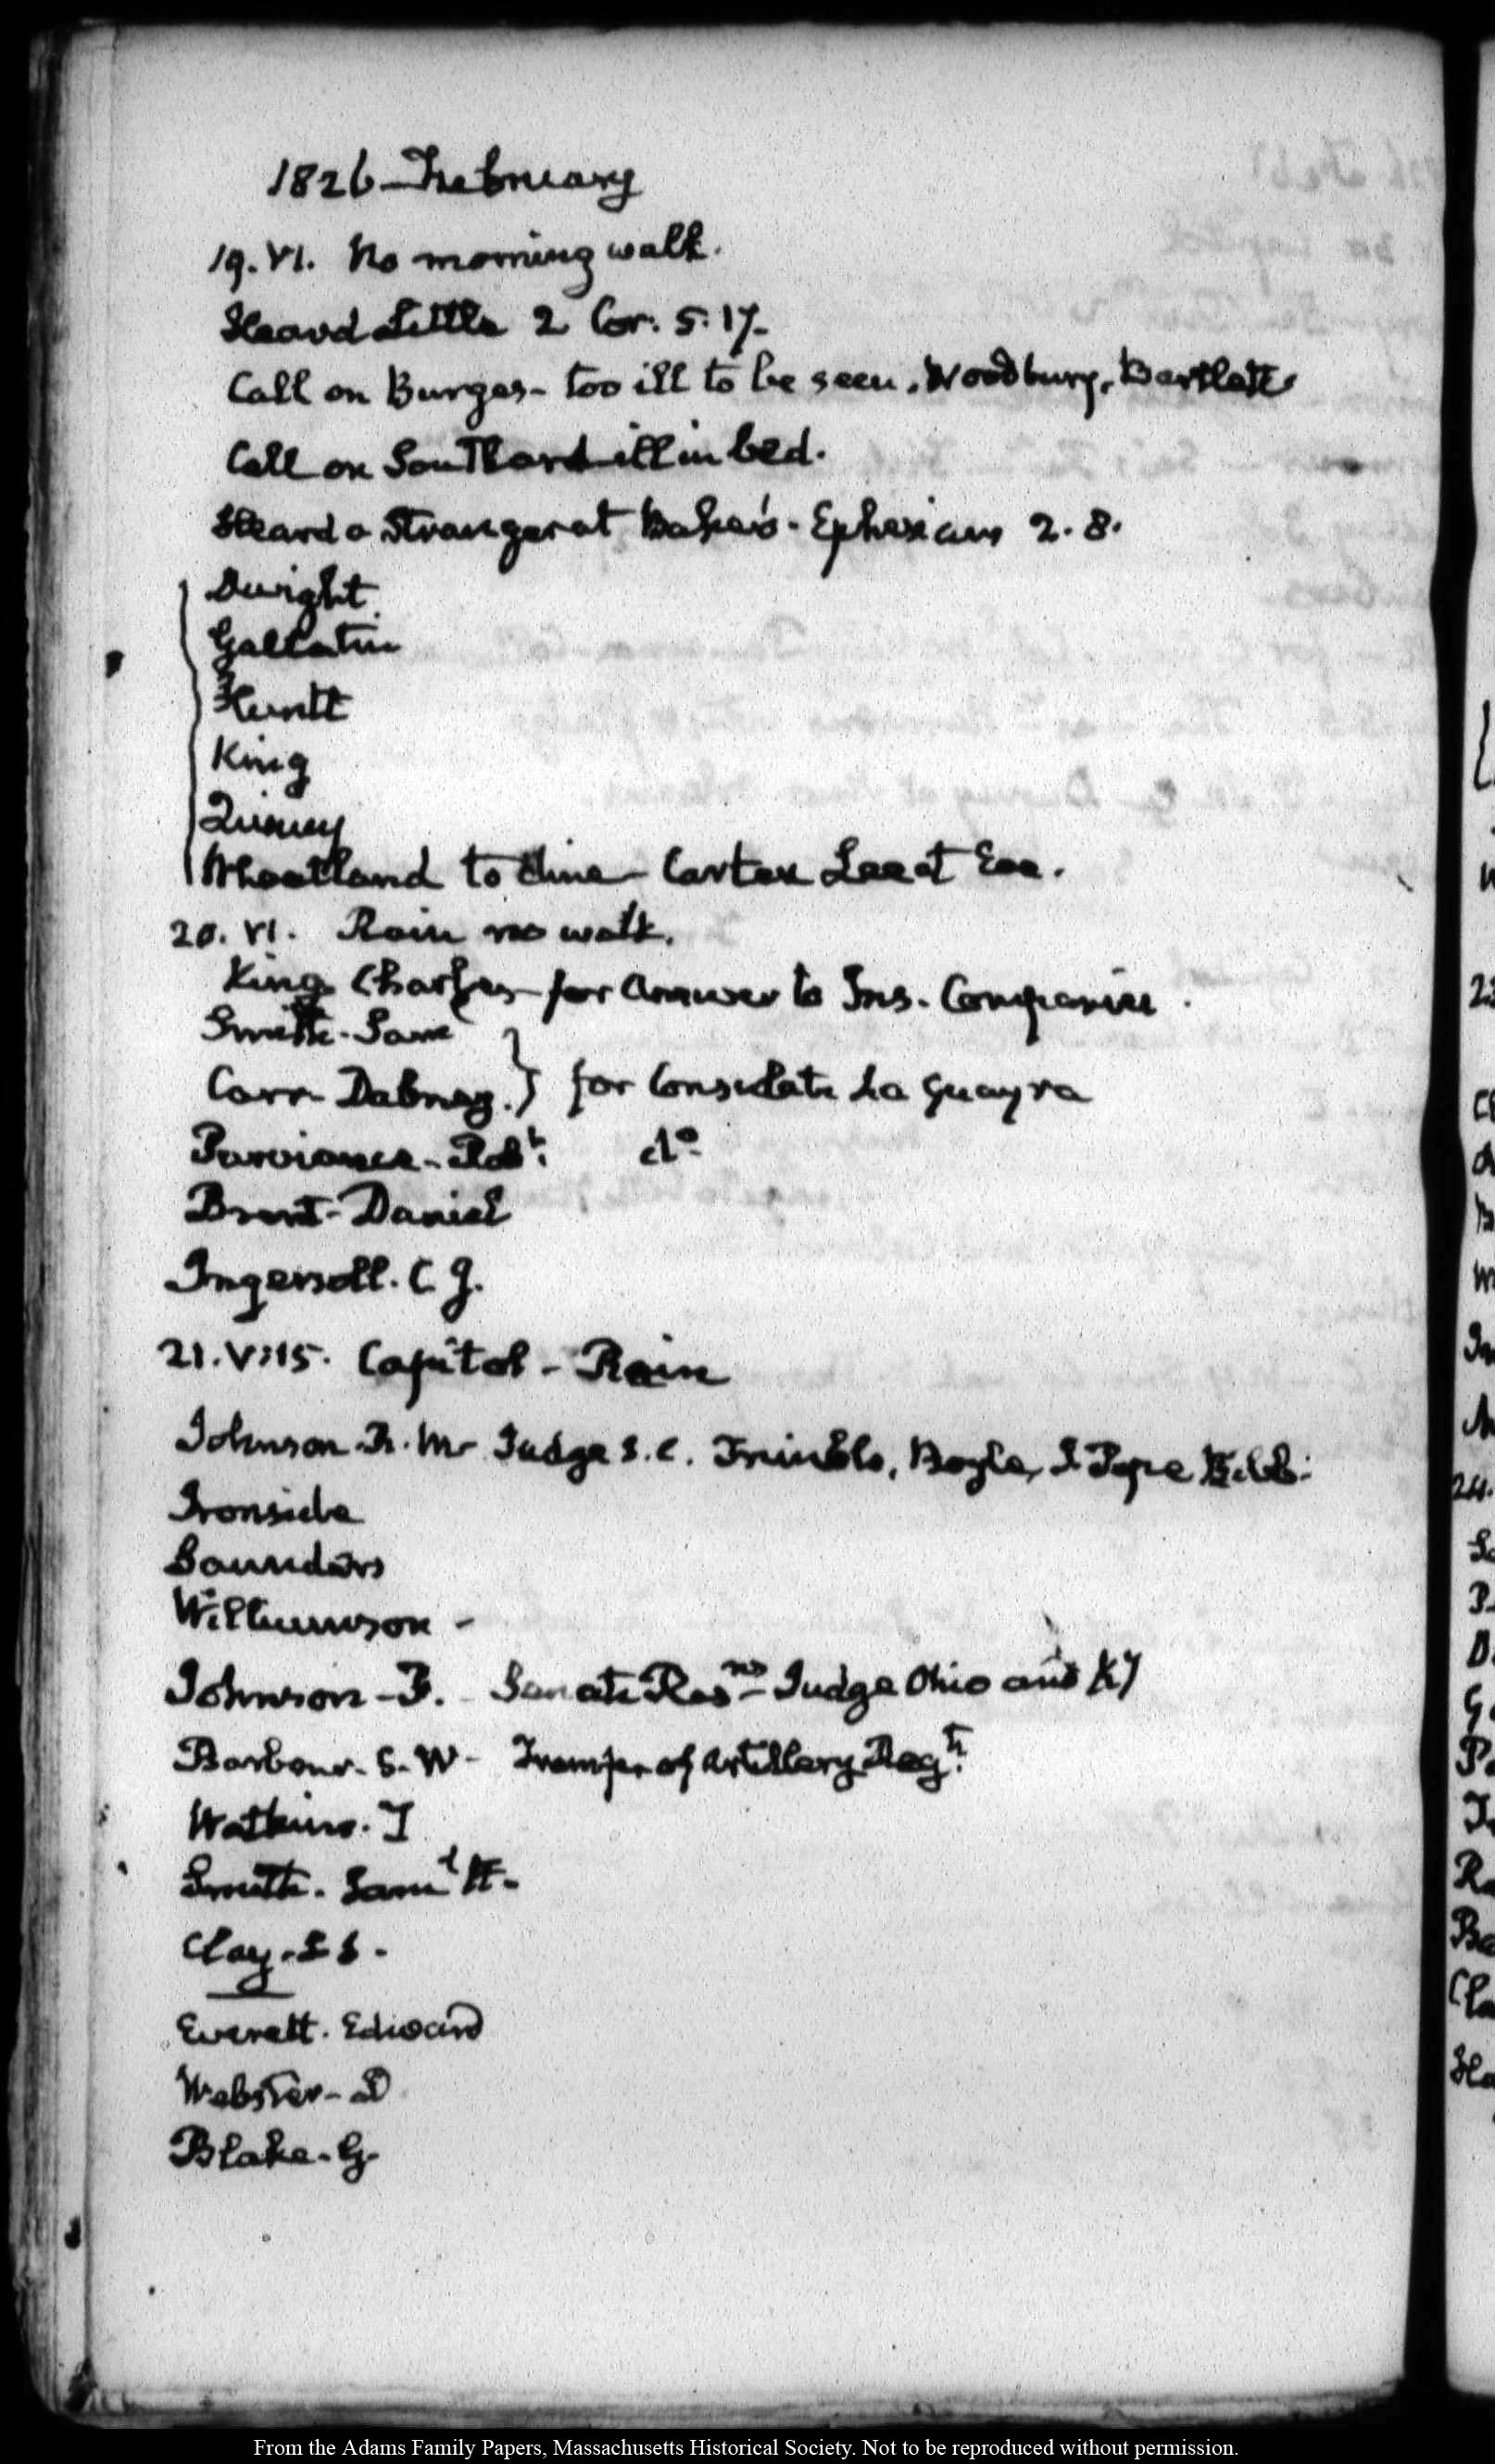 1826 - February
19. VI. No morning walk.
Heard Little 2 Cor: 5. 17.
Call on Burges - too ill to be seen. Woodbury, Bartlett
Call on Southard ill in bed.
Heard a Stranger at Baker's - Ephesians 2. 8.
Dwight
Gallatin
Huntt
King
Quincy
Wheatland to dine - Carter Lee at Eve.
20. VI. Rain no walk.
King Charles for Answer to Ins. Companies.
Smith - Sam
Carr - Dabney. } for Consulate La Guayra
Purviance - Robt. do.
Brent - Daniel
Ingersoll. C J.
21. V:15. Capitol - Rain
Johnson R. M - Judge S. C. Trimble, Boyle, J Pope Bibb.
Ironside
Saunders
Williamson -
Johnson - F. Senate Resns - Judge Ohio and Ky
Barbour. S. W - Transfer of Artillery Regt.
Watkins. T
Smith. Saml H.
Clay. S S.
Everett. Edward
Webster - D
Blake. G.
1826 Feby
From the Adams Family Papers, Massachusetts Historical Society. Not to be reproduced without permission.